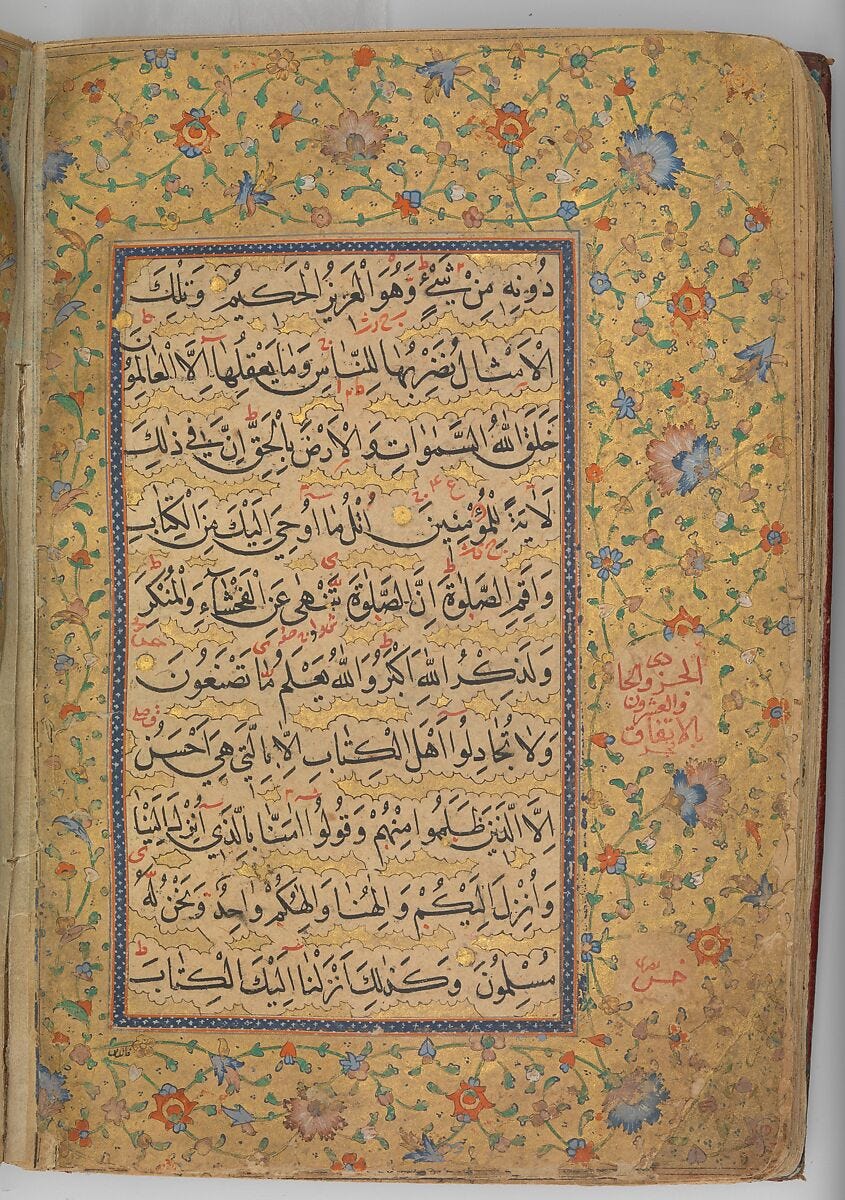 دُونِهِ مِنْ شَيْءٍ وَهُوَ الْعَزِيزُ الْحَكِيمُ وَتِلْكَ
الْأَمْثَالُ نَضْرِبُهَا لِلنَّاسِ وَمَا يَعْقِلُهَا إِلَّا الْعَالِمُونَ
خَلَقَ اللَّهُ السَّمٰوَاتِ وَالْأَرْضَ بِالْحَقِّ إِنَّ فِي ذٰلِكَ
لَآيَةً لِلْمُؤْمِنِينَ اُتْلُ مَا أُوحِيَ إِلَيْكَ مِنَ الْكِتَابِ
وَأَقِمِ الصَّلٰوةَ إِنَّ الصَّلٰوةَ تَنْهٰى عَنِ الْفَحْشَاءِ وَالْمُنْكَرِ
وَلَذِكْرُ اللَّهِ أَكْبَرُ وَاللَّهُ يَعْلَمُ مَا تَصْنَعُونَ
وَلَا تُجَادِلُوا أَهْلَ الْكِتَابِ إِلَّا بِالَّتِي هِيَ أَحْسَنُ
إِلَّا الَّذِينَ ظَلَمُوا مِنْهُمْ وَقُولُوا اٰمَنَّا بِالَّذِي أُنْزِلَ إِلَيْنَا
وَأُنْزِلَ إِلَيْكُمْ وَإِلٰهُنَا وَإِلٰهُكُمْ وَاحِدٌ وَنَحْنُ لَهُ
مُسْلِمُونَ وَكَذٰلِكَ أَنْزَلْنَا إِلَيْكَ الْكِتَابَ
الجزو الحادي
والعشرون
بالاتفاق
فالذين